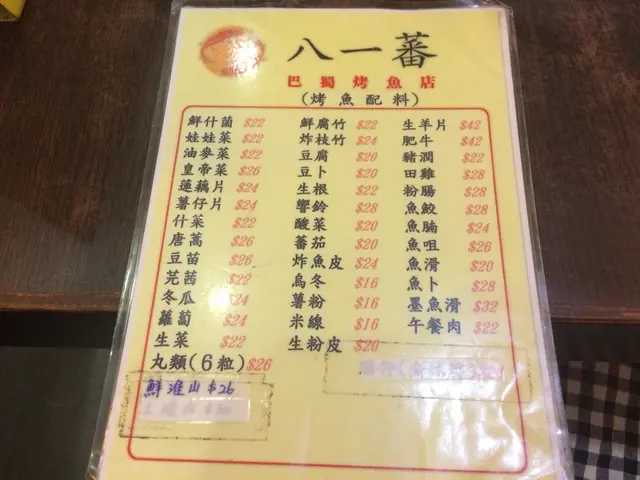 八一蕃
巴蜀烤魚店
(烤魚配料)
鮮什菌 $22
娃娃菜 $22
油麥菜 $22
皇帝菜 $26
蓮藕片 $24
薯仔片 $24
什菜 $22
唐蒿 $26
豆苗 $26
芫茜 $22
冬瓜 $24
蘿蔔 $24
生菜 $22
丸類(6粒) $26
鮮淮山 $26
鮮腐竹 $22
炸枝竹 $24
豆腐 $20
豆卜 $20
生根 $22
響鈴 $28
酸菜 $20
蕃茄 $20
炸魚皮 $24
烏冬 $16
薯粉 $16
米線 $16
生粉皮 $20
生羊片 $42
肥牛 $42
豬潤 $22
田雞 $28
粉腸 $28
魚鮫 $28
魚腩 $24
魚咀 $26
魚滑 $20
魚卜 $28
墨魚滑 $32
午餐肉 $22